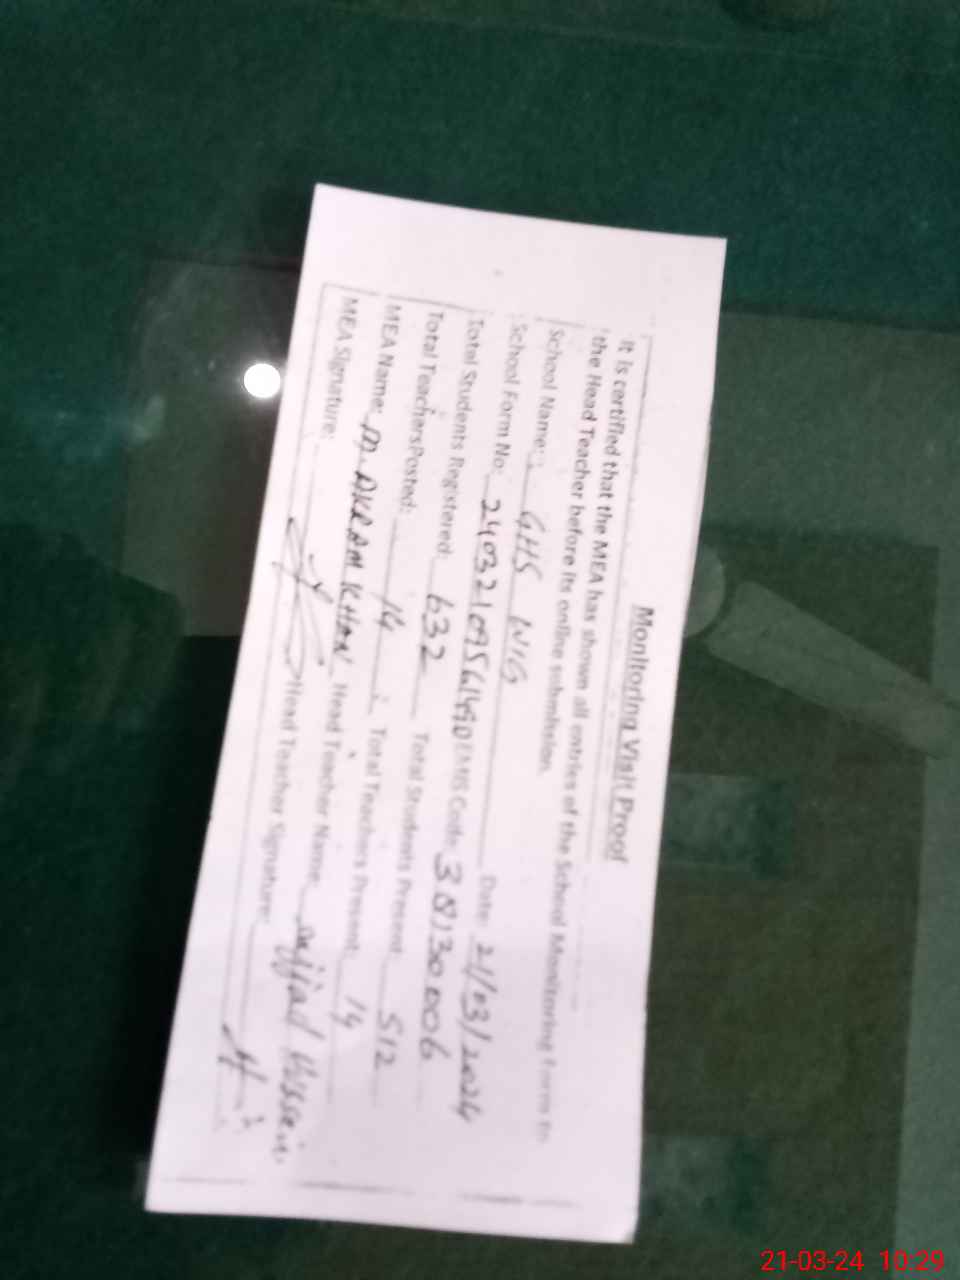 Monitoring Visit Proof
It is certified that the MEA has shown all entries of the School Monitoring Form to
the Head Teacher before its online submission.
School Name: GHS WIG Date: 21/03/2024
School Form No: 24032109561490 EMIS Code: 38130006
Total Students Registered 632 Total Students Present 512
Total TeachersPosted: 14 Total Teachers Present: 14
MEA Name: M. AKRAM KHAN Head Teacher Name sajjad Hussain
MEA Signature: Head Teacher Signature:
21-03-24 10:29